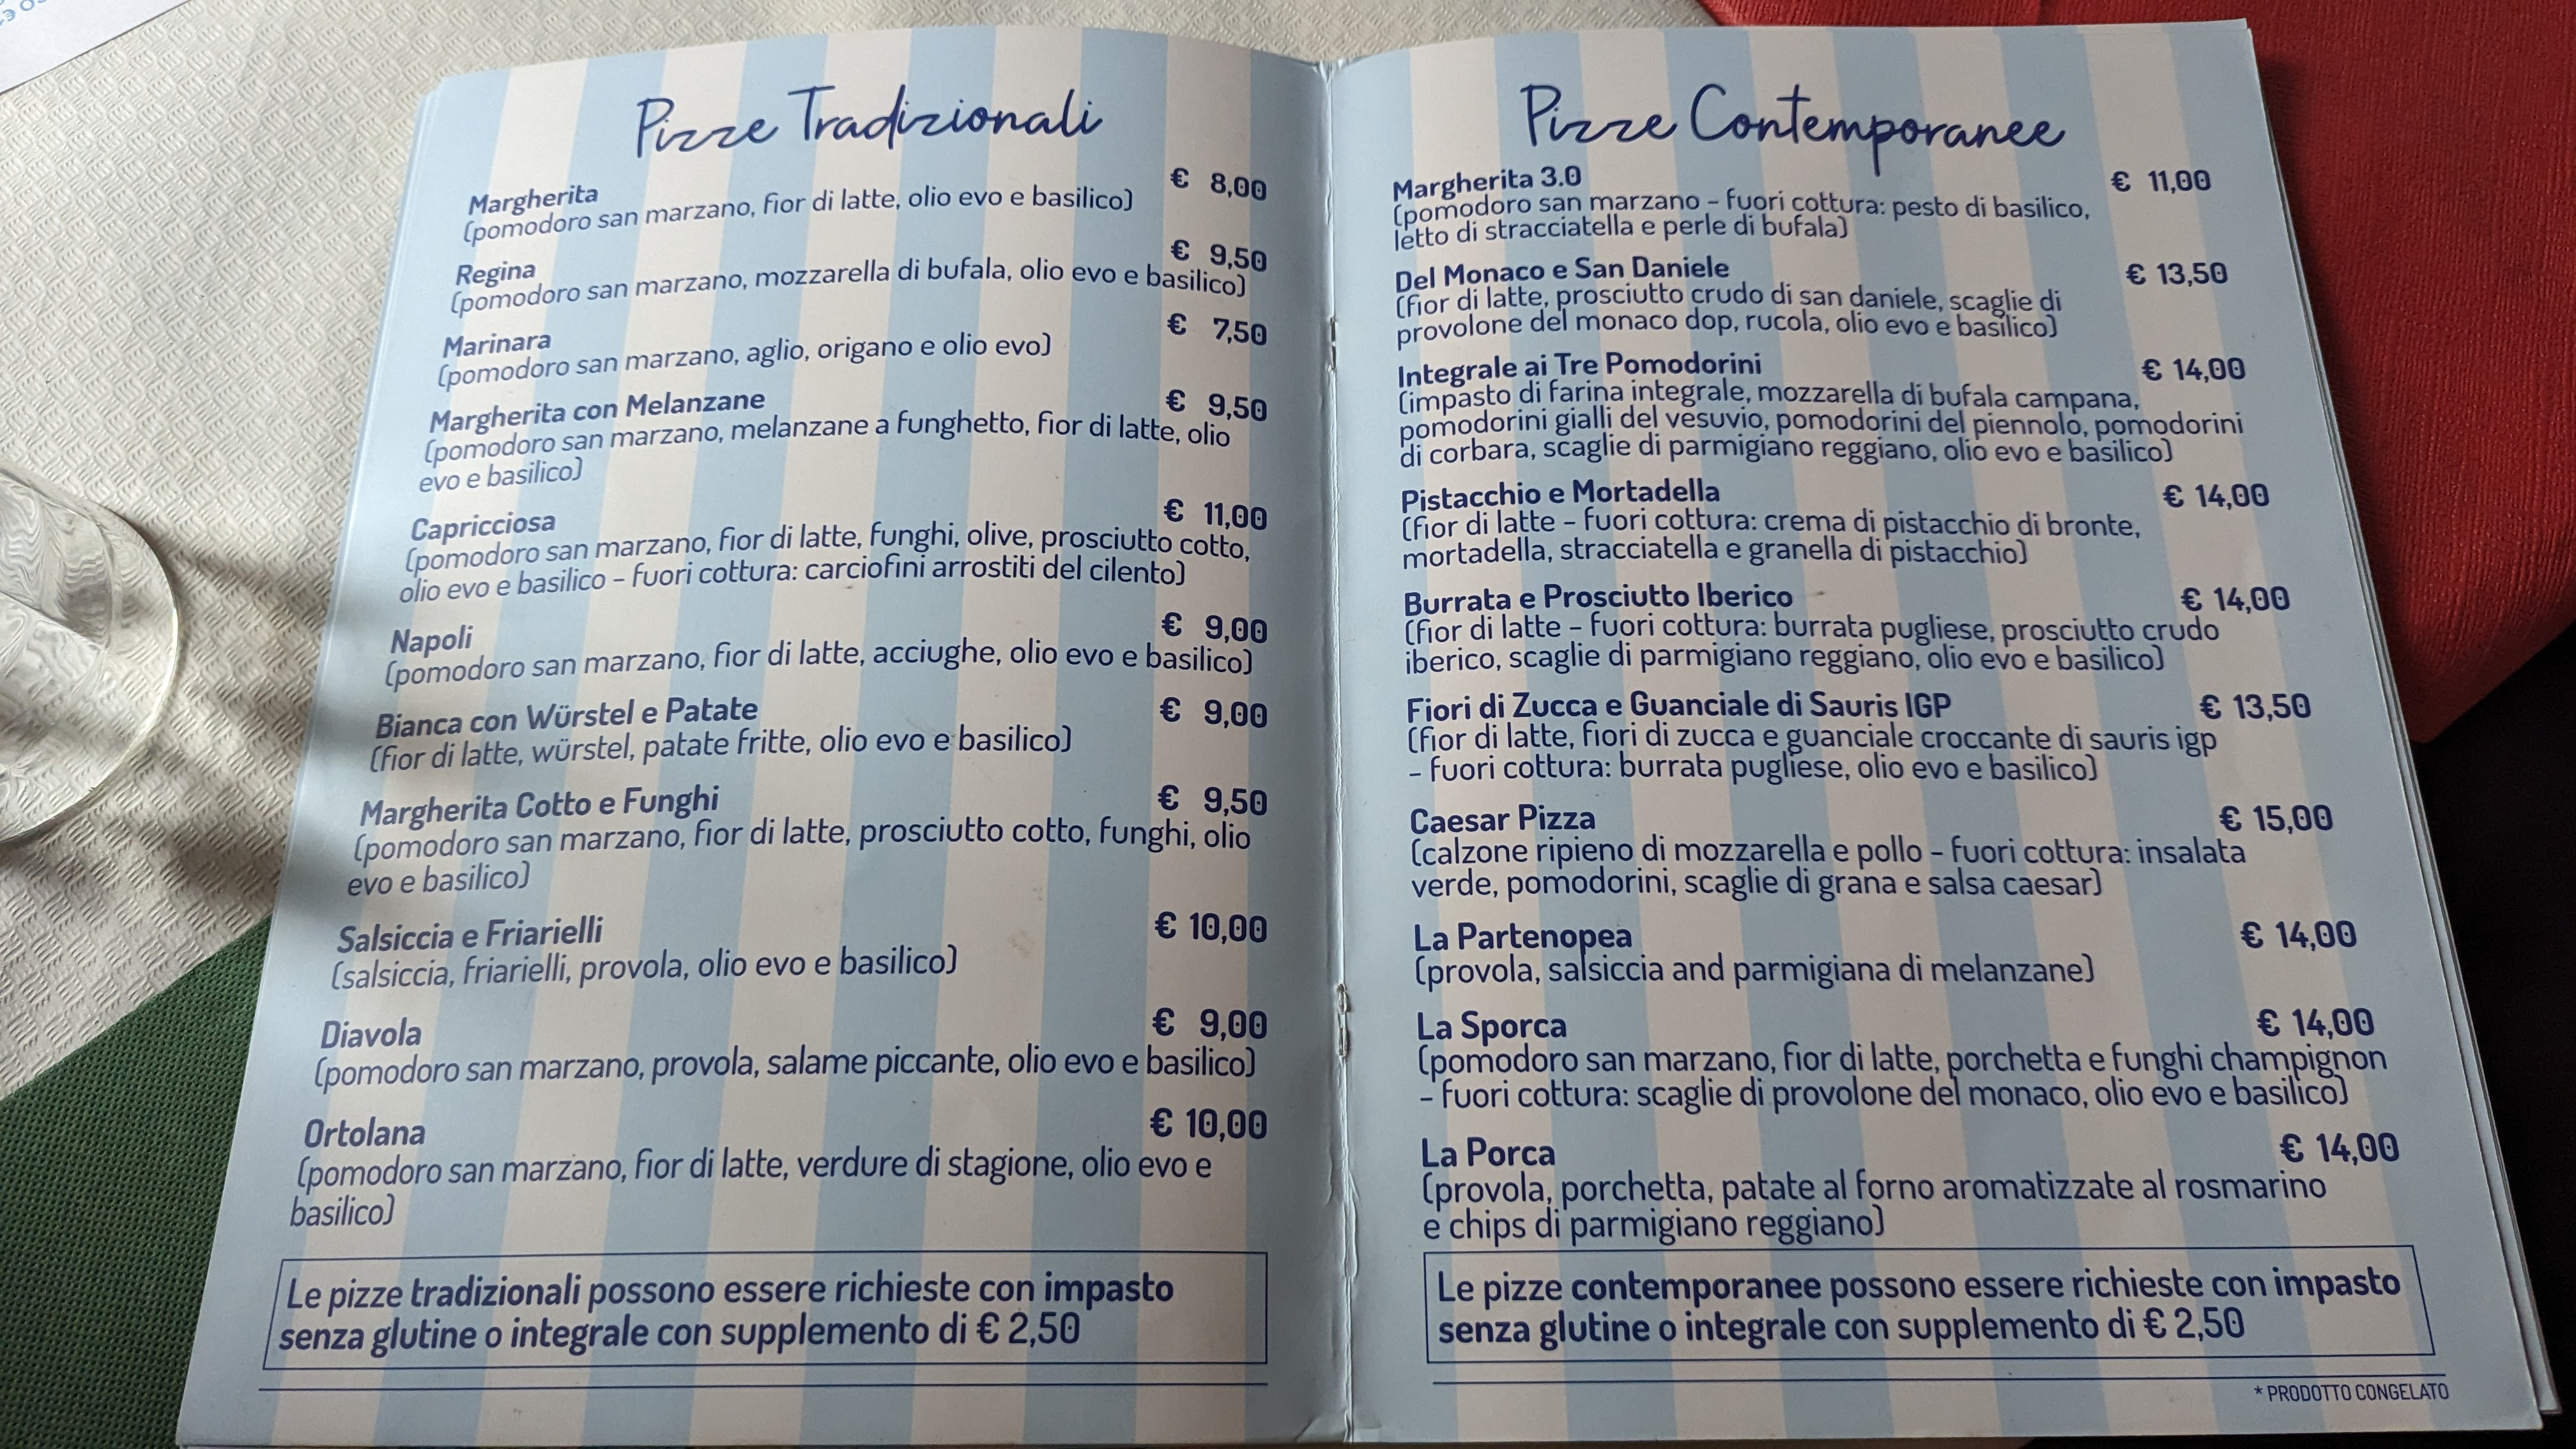 Pizze Tradizionali
Margherita € 8,00
(pomodoro san marzano, fior di latte, olio evo e basilico)
Regina € 9,50
(pomodoro san marzano, mozzarella di bufala, olio evo e basilico)
Marinara € 7,50
(pomodoro san marzano, aglio, origano e olio evo)
Margherita con Melanzane € 9,50
(pomodoro san marzano, melanzane a funghetto, fior di latte, olio
evo e basilico)
Capricciosa € 11,00
(pomodoro san marzano, fior di latte, funghi, olive, prosciutto cotto,
olio evo e basilico – fuori cottura: carciofini arrostiti del cilento)
Napoli € 9,00
(pomodoro san marzano, fior di latte, acciughe, olio evo e basilico)
Bianca con Würstel e Patate € 9,00
(fior di latte, würstel, patate fritte, olio evo e basilico)
Margherita Cotto e Funghi € 9,50
(pomodoro san marzano, fior di latte, prosciutto cotto, funghi, olio
evo e basilico)
Salsiccia e Friarielli € 10,00
(salsiccia, friarielli, provola, olio evo e basilico)
Diavola € 9,00
(pomodoro san marzano, provola, salame piccante, olio evo e basilico)
Ortolana € 10,00
(pomodoro san marzano, fior di latte, verdure di stagione, olio evo e
basilico)
Le pizze tradizionali possono essere richieste con impasto
senza glutine o integrale con supplemento di € 2,50
Pizze Contemporanee
Margherita 3.0 € 11,00
(pomodoro san marzano – fuori cottura: pesto di basilico,
letto di stracciatella e perle di bufala)
Del Monaco e San Daniele € 13,50
(fior di latte, prosciutto crudo di san daniele, scaglie di
provolone del monaco dop, rucola, olio evo e basilico)
Integrale ai Tre Pomodorini € 14,00
(impasto di farina integrale, mozzarella di bufala campana,
pomodorini gialli del vesuvio, pomodorini del piennolo, pomodorini
di corbara, scaglie di parmigiano reggiano, olio evo e basilico)
Pistacchio e Mortadella € 14,00
(fior di latte – fuori cottura: crema di pistacchio di bronte,
mortadella, stracciatella e granella di pistacchio)
Burrata e Prosciutto Iberico € 14,00
(fior di latte – fuori cottura: burrata pugliese, prosciutto crudo
iberico, scaglie di parmigiano reggiano, olio evo e basilico)
Fiori di Zucca e Guanciale di Sauris IGP € 13,50
(fior di latte, fiori di zucca e guanciale croccante di sauris igp
– fuori cottura: burrata pugliese, olio evo e basilico)
Caesar Pizza € 15,00
(calzone ripieno di mozzarella e pollo – fuori cottura: insalata
verde, pomodorini, scaglie di grana e salsa caesar)
La Partenopea € 14,00
(provola, salsiccia and parmigiana di melanzane)
La Sporca € 14,00
(pomodoro san marzano, fior di latte, porchetta e funghi champignon
– fuori cottura: scaglie di provolone del monaco, olio evo e basilico)
La Porca € 14,00
(provola, porchetta, patate al forno aromatizzate al rosmarino
e chips di parmigiano reggiano)
Le pizze contemporanee possono essere richieste con impasto
senza glutine o integrale con supplemento di € 2,50
* PRODOTTO CONGELATO